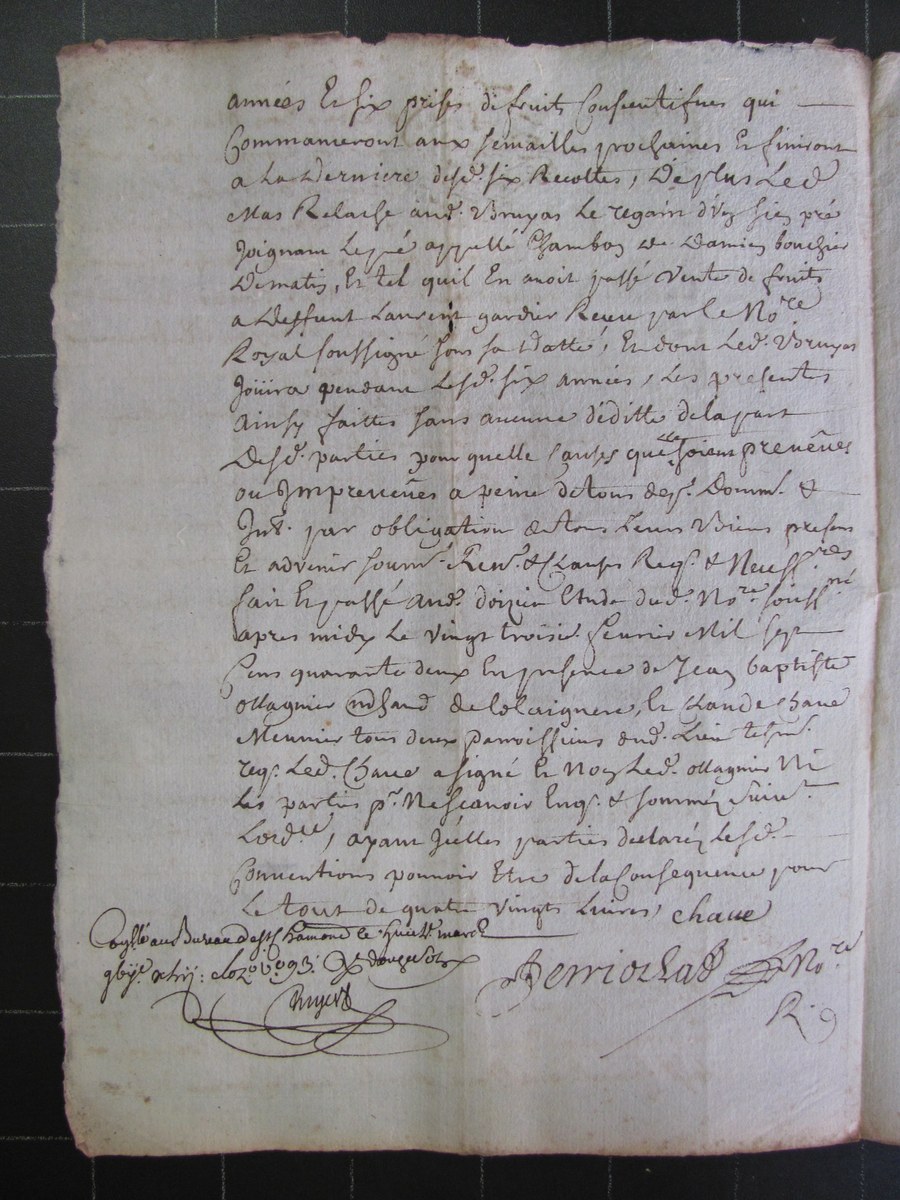 années Et six prises de fruits Consecutifves qui
Commanceront aux semailles prochaines Et finiront
a La Derniere desd. six Recoltes, De plus Led.
Mas Relache aud. Bruyas Le regain d'Un sien pré
Joignant Le pré appellé Chambon De Damien bouchier
Dematis, Et tel quil En avoit passé Vente de fruits
a Deffunt Laurent gardier Receu par le No.re
Royal soussigné sous sa Datte, Et dont Led. Bruyas
Joüira pendant Lesd. six années, Les presentes
Ainsy faittes sans aucune déditte de la part
Desd. parties pour quelle causes que soient preveües
ou Impreveües a peine de tous desp. Domm. &
Int. par obligation de tous Leurs Biens presens
Et advenir soum. Ren. & Clauses Req. & Necess.res
fait Et passé aud. Etude dud. No.re souss.né
apres midy Le vingt troisie. fevrier Mil sept
Cens quarante deux En presence de Jean baptiste
Ollagnier mchand de Et Claude Chave
Meunier tous deux paroissiens dud. Lieu tesm.
req. Led. Chave a signé Et Non Led. Ollagnier Ni
Les parties p.r Ne scavoir Enq. & sommés suiv.t
Lord.ce, ayant Icelles parties declaré Lesd.
Conventions pouvoir Etre de la Consequence pour
Le tout de quatre vingts Livres, chave
au Bureau de St Chamond le huit mars
No.re
R.